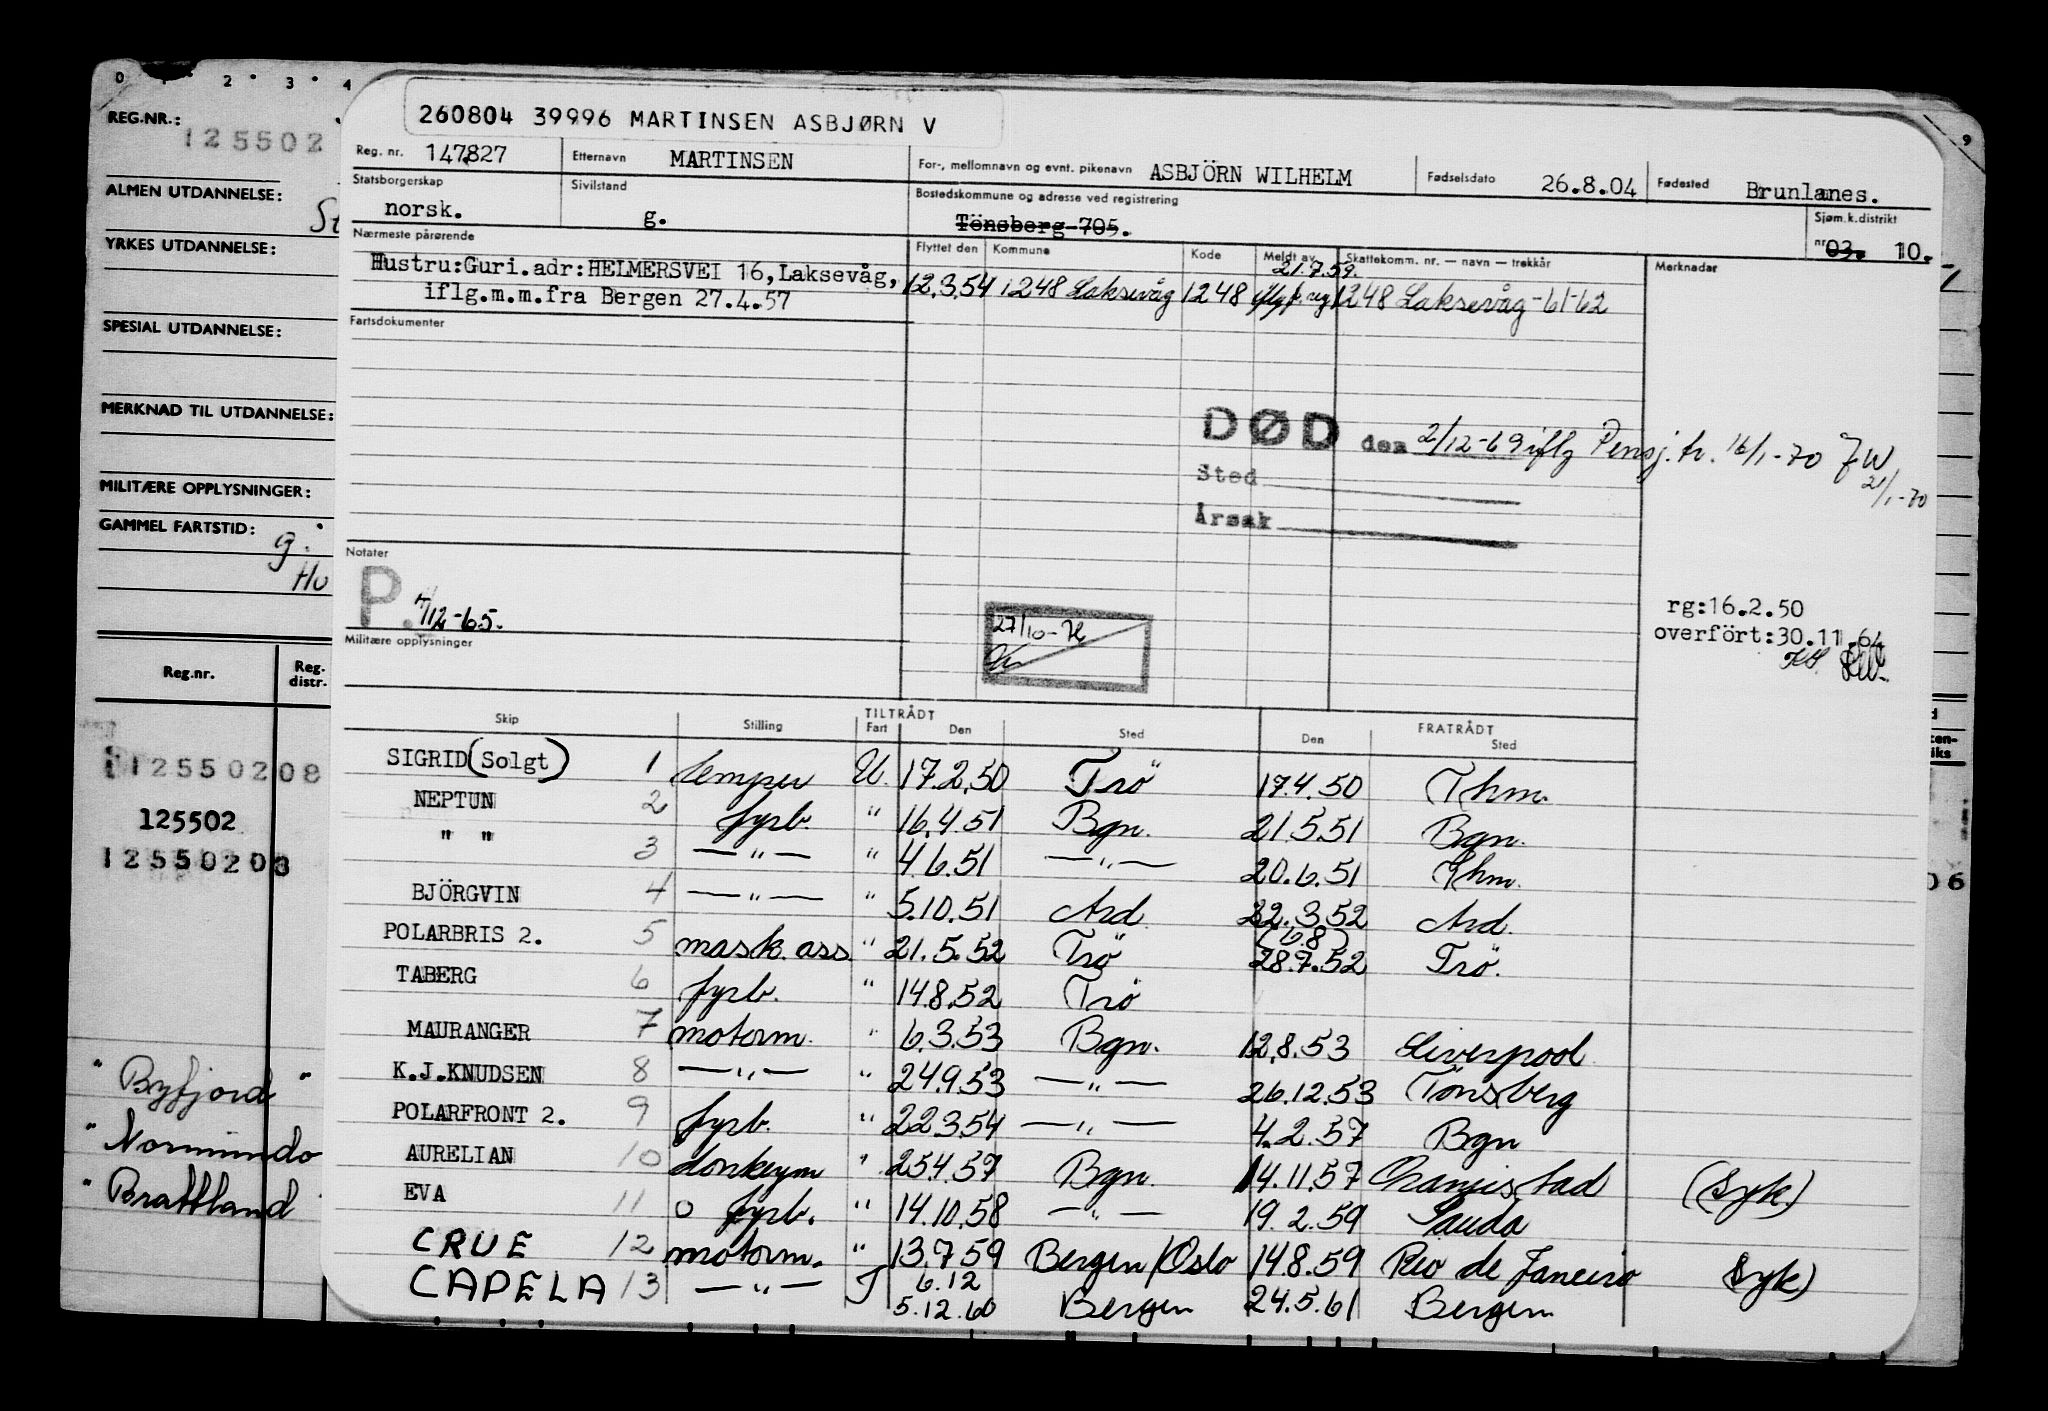 0 1 2 3 4
9
REG.NR.:
125502
ALMEN UTDANNELSE:
YRKES UTDANNELSE:
SPESIAL UTDANNELSE:
MERKNAD TIL UTDANNELSE:
MILITÆRE OPPLYSNINGER:
GAMMEL FARTSTID:
g.
Reg.nr. Reg. distr.
12550208
125502
12550203
"Byfjord"
"Normindo
"Brattland
260804 39996 MARTINSEN ASBJØRN V
Reg. nr. 147827 Etternavn MARTINSEN For-, mellomnavn og evnt. pikenavn ASBJÖRN WILHELM Fødselsdato 26.8.04 Fødested Brunlanes.
Statsborgerskap norsk. Sivilstand g. Bostedskommune og adresse ved registrering Tönsberg 705. Sjøm.k.distrikt nr 03. 10.
Nærmeste pårørende Flyttet den Kommune Kode Meldt av Skattekomm. nr. — navn — trekkår Merknader
21.7.59.
Hustru:Guri.adr:HELMERSVEI 16,Laksevåg, 12.3.54 1248 Laksevåg 1248 iflg f. reg 1248 Laksevåg-61-62
iflg.m.m.fra Bergen 27.4.57
Fartsdokumenter
DØD den 2/12-69 iflg Pensj.tr. 16/1-70 JW,
21/1-70
Sted
Årsak
Notater
P. 7/12-65.
27/10-72
rg:16.2.50
overfört:30.11.64
Militære opplysninger
Skip Stilling TILTRÅDT Fart Den Sted FRATRÅDT Den Sted
SIGRID (Solgt) 1 lemper U. 17.2.50 Trö 17.4.50 Thm.
NEPTUN 2 fyrb. " 16.4.51 Bgn. 21.5.51 Bgn.
" " 3 —"— " 4.6.51 —"— 20.6.51 Thm.
BJÖRGVIN 4 —"— " 5.10.51 Ard 22.3.52 Ard.
(6.8)
POLARBRIS 2. 5 mask.ass " 21.5.52 Trö 28.7.52 Trö.
TABERG 6 fyrb. " 14.8.52 Trö
MAURANGER 7 motorm. " 6.3.53 Bgn. 12.8.53 Liverpool
K.J.KNUDSEN 8 —"— " 24.9.53 —"— 26.12.53 Tönsberg
POLARFRONT 2. 9 fyrb. " 22.3.54 —"— 4.2.57 Bgn
AURELIAN 10 donkeym " 25.4.57 Bgn. 14.11.57 (Syk)
EVA 11 o fyrb. " 14.10.58 —"— 19.2.59 Sauda
CRUE 12 motorm. " 13.7.59 Bergen/Oslo 14.8.59 Rio de Janeiro Syk)
6.12
CAPELA 13 —"— J 5.12.60 Bergen 24.5.61 Bergen